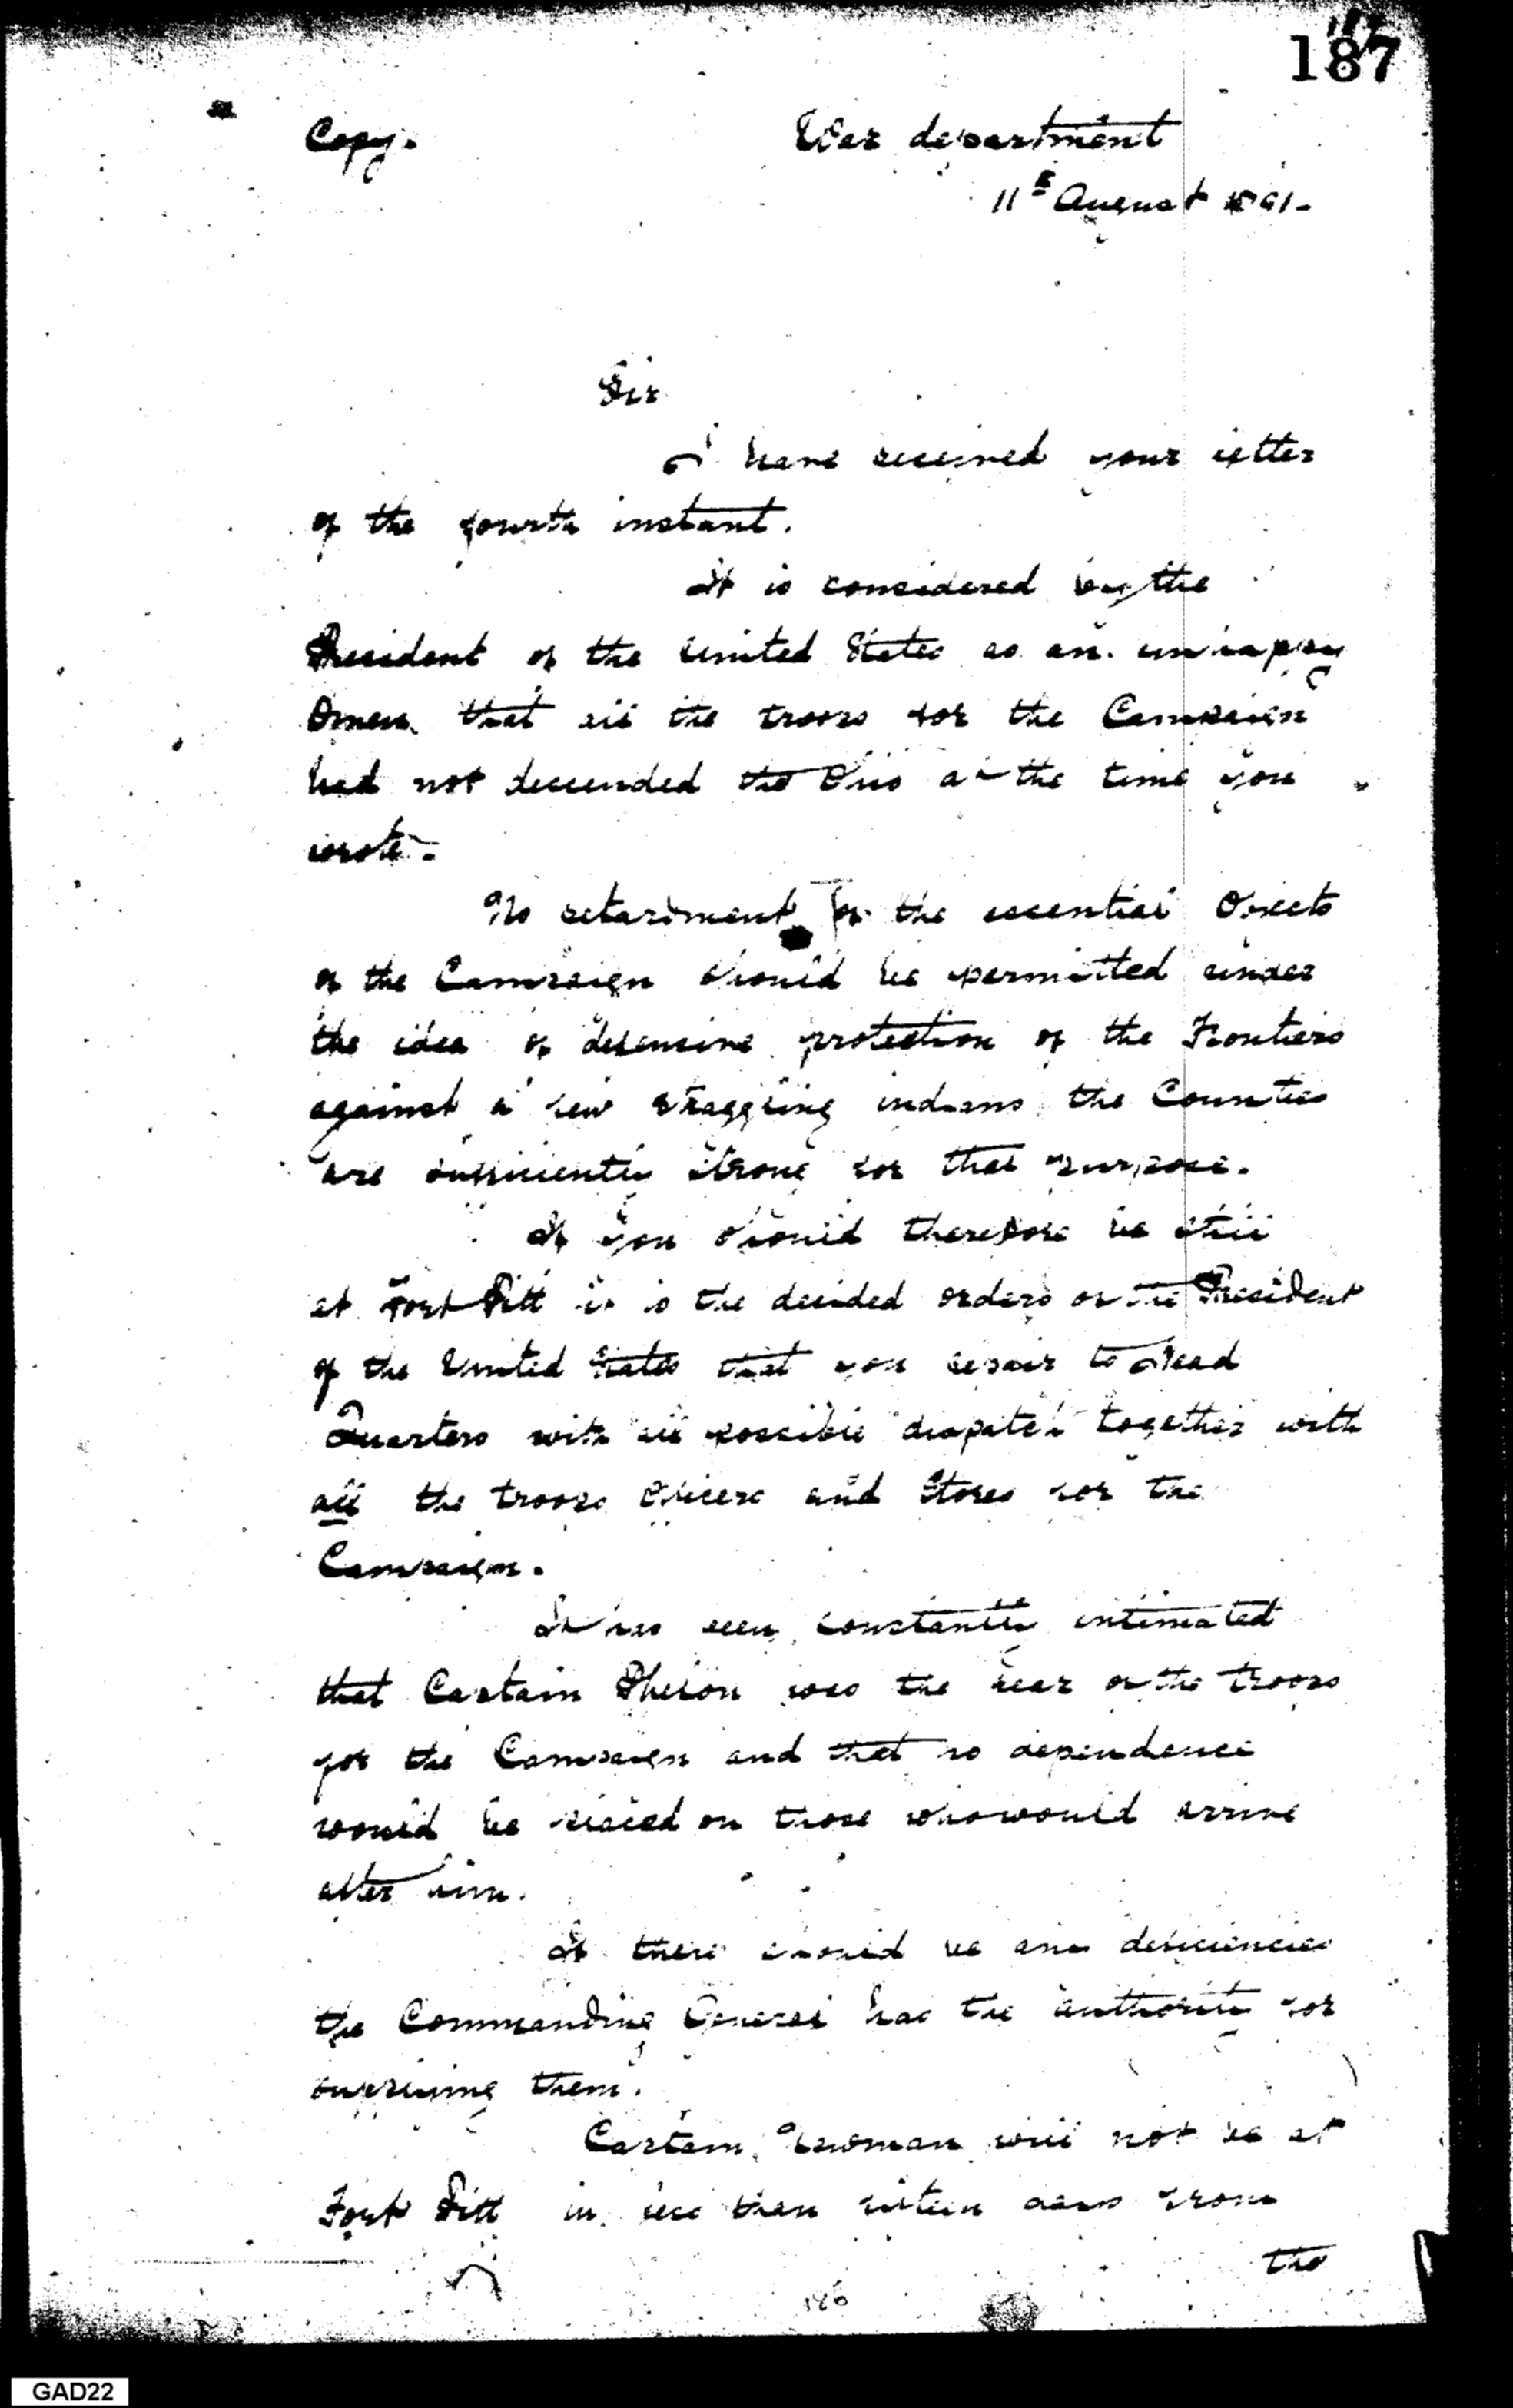 187
Copy.
War department
11th August 1791-
Sir
I have received your letter
of the fourth instant.
It is considered by the
President of the United States as an unhappy
Omen that all the troops for the Campaign
had not descended the Ohio at the time you
wrote-
No retardment for the essential Objects
of the Campaign should be permitted under
the idea of defensive protection of the Frontiers
against a few straggling indians, the Counties
are sufficiently strong for that purpose.
If you should therefore be still
at Fort Pitt it is the decided orders of the President
of the United States that you repair to Head
Quarters with all possible dispatch together with
all the troops Officers and Stores for the
Campaign.
It has been constantly intimated
that Captain Phelon was the rear of the troops
for the Campaign and that no dependence
would be placed on those who would arrive
after him.
If there should be any deficiencies
the Commanding General has the authority for
supplying them.
Captain Newman will not be at
Fort Pitt in less than sixteen days from
the
186
GAD22